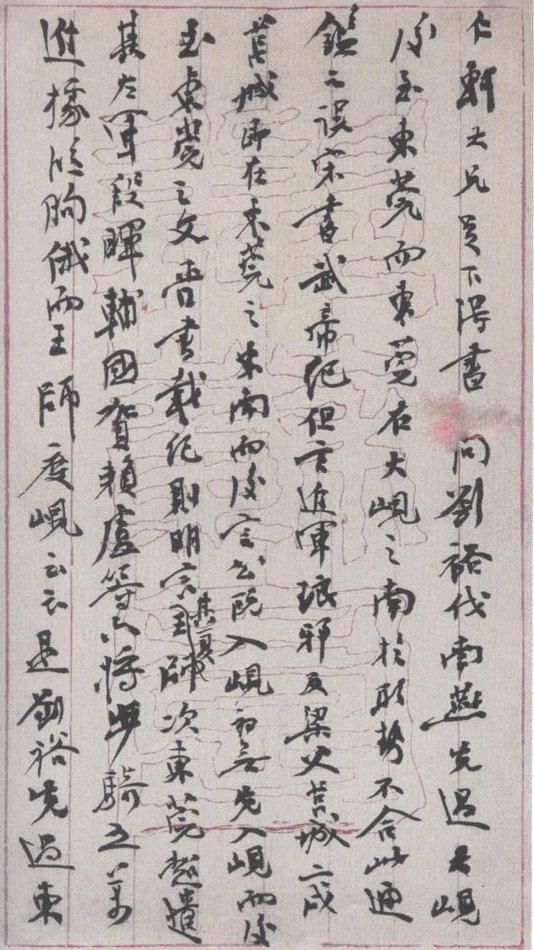 仁軒大兄足下得書問劉裕伐南燕先過大峴
後至東莞而東莞在大峴之南於形勢不合此通
鑑之誤宋書武帝紀但言進軍琅邪及梁父莒城二戍
莒城即在東莞之東南而後言公既入峴初無先入峴而後
至東莞之文晉書載紀則明言王師次東莞超遣
其左軍段暉輔國賀賴盧等六將步騎五萬
進據臨朐俄而王師度峴云云是劉裕先過東